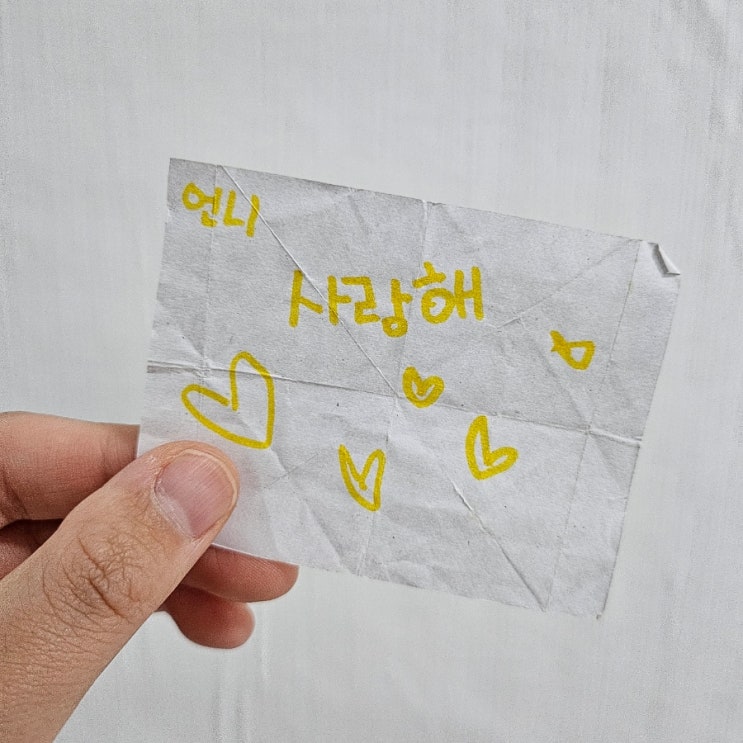 언니
사랑해